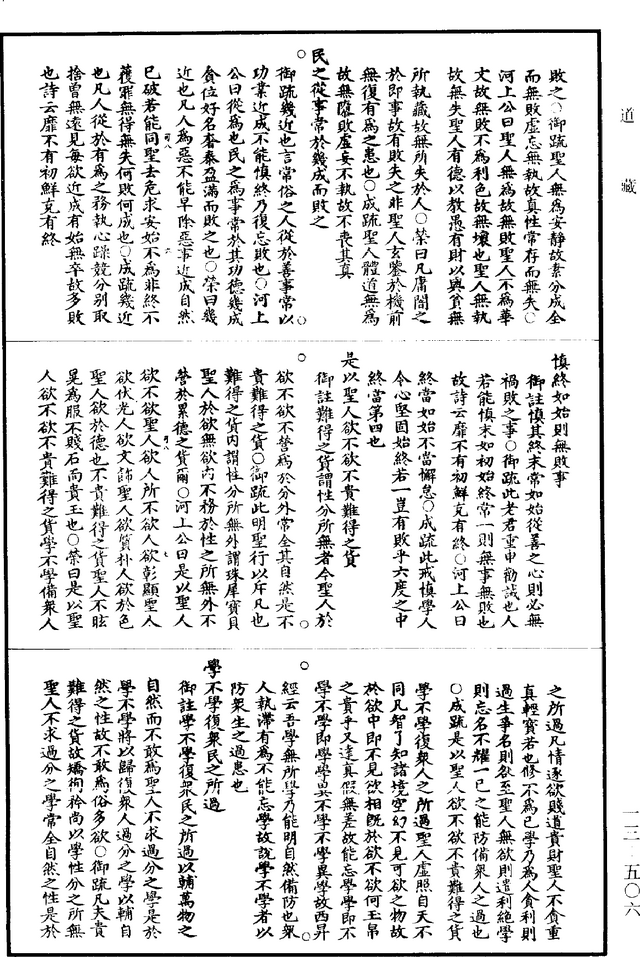 道藏
敗之○御疏聖人無為安靜故素分成全
而無敗虛忘無執故真性常存而無失○
河上公曰聖人無為故無敗聖人不為華
文故無敗不為利色故無壞也聖人無執
故無失聖人有德以教愚有財以與貧無
所執藏故無所失於人○榮曰凡庸闇之
於即事故有敗失之非聖人玄鑒於機前
無復有為之患也○成疏聖人體道無為
故無薩敗虛妄不執故不喪其真
民之從事常於幾成而敗之
御疏幾近也言常俗之人從於善事常以
功業近成不能慎終乃復忘敗也○河上
公曰從為也民之為事常於其功德幾成
貪位好名奢泰盈滿而敗之也○榮曰幾
近也凡人為惡不能早除惡事近成自然
已破若能同聖去危求安始不為非終不
獲罪無得無失何敗何成也○成疏幾近
也凡人從於有為之務執心躁競分別取
捨曾無遠見每欲近成有始無卒故多敗
也詩云靡不有初鮮克有終
慎終如始則無敗事
御註慎其終末常如始從善之心則必無
禍敗之事○御疏此老君重申勸誡也人
若能慎末如初始終常一則無事無敗也
故詩云靡不有初鮮克有終○河上公曰
終當如始不當懈怠○成疏此戒慎學人
令心堅固始終若一豈有敗乎六度之中
終當第四也
是以聖人欲不欲不貴難得之貨
御註難得之貨謂性分所無者今聖人於
欲不欲不營為於分外常全其自然是不
貴難得之貨○御疏此明聖行以斥凡也
難得之貨內謂性分所無外謂珠犀寶貝
聖人於欲無欲內不務於性之所無外不
營於累德之貨爾○河上公曰是以聖人
欲不欲聖人欲人所不欲人欲彰顯聖人
欲伏光人欲文飾聖人欲質朴人欲於色
聖人欲於德也不貴難得之貨聖人不眩
晃為服不賤石而貴玉也○榮曰是以聖
人欲不欲不貴難得之貨學不學備衆人
之所過凡情逐欲賤道貴財聖人不貪重
真輕寶若也修不為己學乃為人貪利則
過生爭名則欲至聖人無欲則遣利絕學
則忘名不耀一己之能防備衆人之過也
○成疏是以聖人欲不欲不貴難得之貨
學不學復衆人之所過聖人虛照自天不
同凡智了知諸境空幻不見可欲之物故
於欲中即不見欲相既於欲不欲何玉帛
之貴乎又達真假無差故能忘學學即不
學不學即學學異不學不學異學故西昇
經云吾學無所學乃能明自然備防也衆
人執滯有為不能忘學故說學不學者以
防衆生之過患也
學不學復衆民之所過
御註學不學復衆民之所過以輔萬物之
自然而不敢為聖人不求過分之學是於
學不學將以歸復衆人過分之學以輔自
然之性故不敢為俗多欲○御疏凡夫貴
難得之貨故矯徇矜尚以學性分之所無
聖人不求過分之學常全自然之性是於